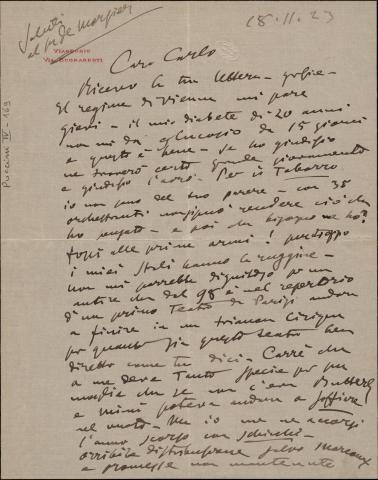 Saluti
18.11.23
VIAREGGIO
VIA BUONARROTI
Puccini IV - 169
Caro Carlo
Ricevo la tua lettera - grazie -
Il regime di Vienna mi pare
giovi - il mio diabete di 20 anni
non mi dà glucosio da 15 giorni
e questo è bene - se ho giudizio
ne troverò certo grande giovamento
e giudizio l'avrò - Per il Tabarro
io non sono del tuo parere - con 35
orchestranti non si può rendere ciò che
ho pensato - e poi che bisogno ne ho?
forse alle prime armi! purtroppo
i miei strali hanno la ruggine -
non mi parrebbe dignitoso per un
autore che dal 98 è nel repertorio
d'un primo Teatro di Parigi andare
a finire in un trianon
per quanto sia questo teatro ben
diretto come tu dici - Carré che
a me deve tanto specie per sua
moglie che se non c'era Butterfly
e Mimì poteva andare a soffiare
nel vuoto - Me io me ne accorsi
l'anno scorso con Schicchi -
orribile distribuzione salvo
e promesse non mantenute